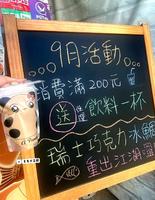 9月活動
消費滿200元
送 飲料一杯
瑞士巧克力冰鯛
重出江湖